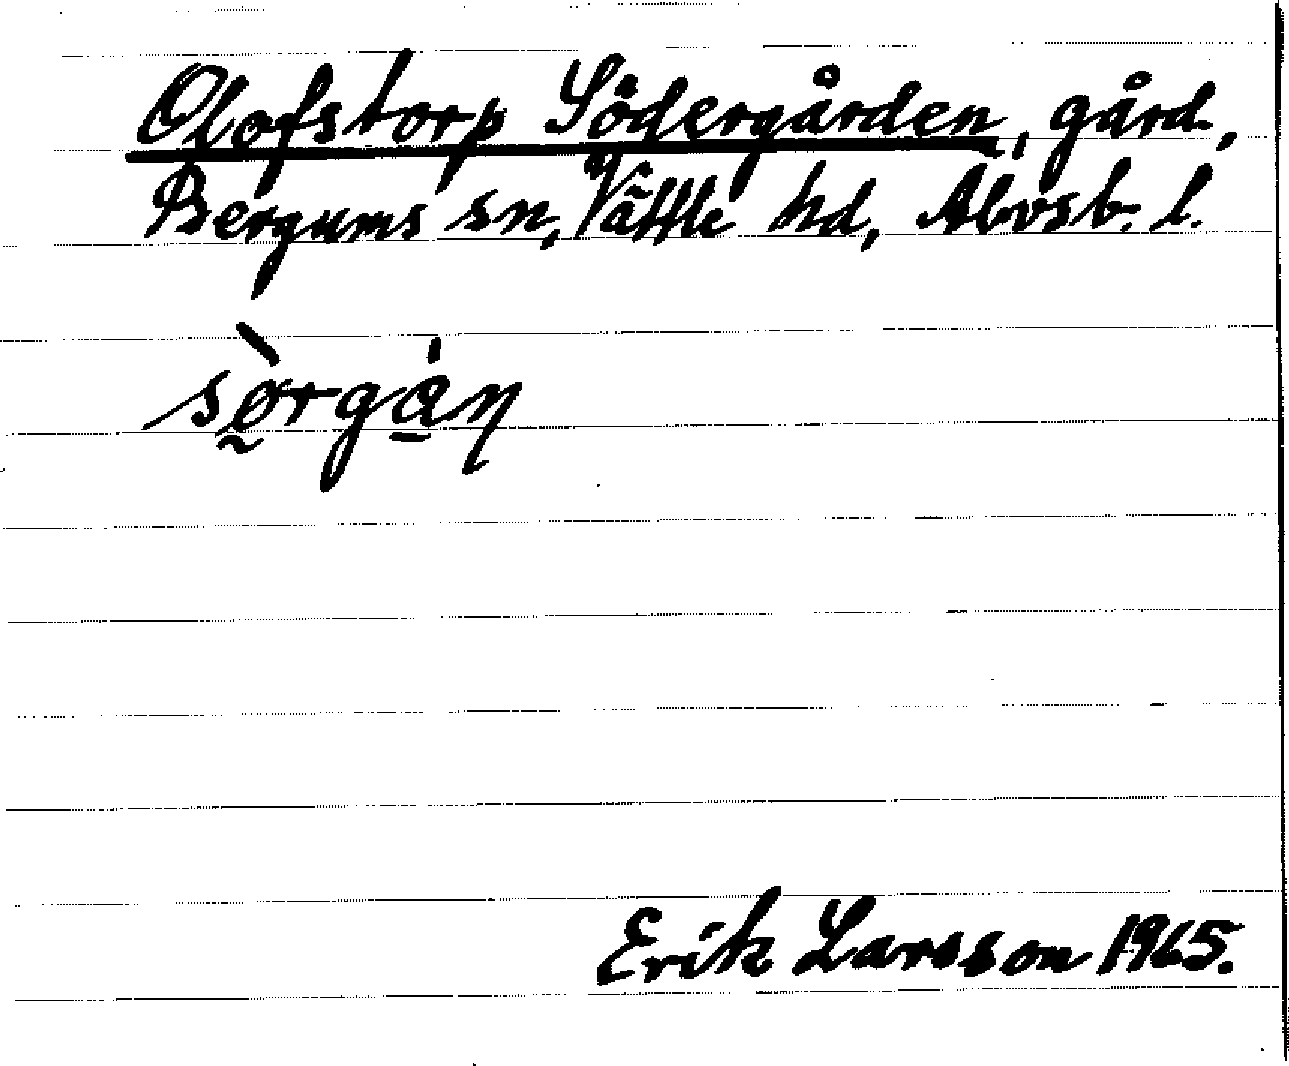 Olofstorp Södergården, gård,
Bergums sn, Vättle hd, Älvsb. l.
sø̀rgán
Erik Larsson 1965.